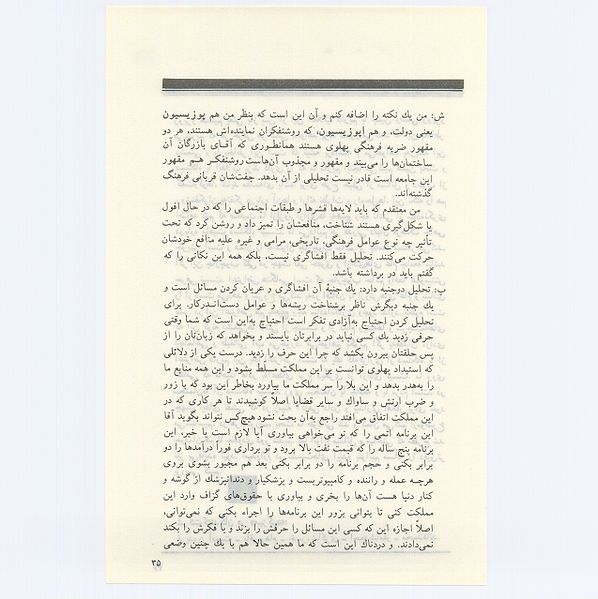 ش: من یك نکته را اضافه کنم و آن این است که بنظر من هم پوزیسیون
یعنی دولت، و هم اپوزیسیون، که روشنفکران نماینده‌اش هستند، هر دو
مقهور ضربه فرهنگی پهلوی هستند همانطوری که آقای بازرگان آن
ساختمان‌ها را می‌بیند و مقهور و مجذوب آن‌هاست روشنفکر هم مقهور
این جامعه است قادر نیست تحلیلی از آن بدهد. جفت‌شان قربانی فرهنگ
گذشته‌اند.
من معتقدم که باید لایه‌ها قشرها و طبقات اجتماعی را که در حال افول
یا شکل‌گیری هستند شناخت، منافعشان را تمیز داد و روشن کرد که تحت
تأثیر چه نوع عوامل فرهنگی، تاریخی، مرامی و غیره علیه منافع خودشان
حرکت می‌کنند. تحلیل فقط افشاگری نیست، بلکه همه این نکاتی را که
گفتم باید در برداشته باشد.
ب: تحلیل دوجنبه دارد: یك جنبهٔ آن افشاگری و عریان کردن مسائل است و
یك جنبه دیگرش ناظر برشناخت ریشه‌ها و عوامل دست‌اندرکار. برای
تحلیل کردن احتیاج به‌آزادی تفکر است احتیاج به‌این است که شما وقتی
حرفی زدید یك کسی نیاید در برابرتان بایستد و بخواهد که زبان‌تان را از
پس حلقتان بیرون بکشد که چرا این حرف را زدید. درست یکی از دلائلی
که استبداد پهلوی توانست بر این مملکت مسلط بشود و این همه منابع ما
را به‌هدر بدهد و این بلا را سر مملکت ما بیاورد بخاطر این بود که با زور
و ضرب ارتش و ساواك و سایر قضایا اصلاً کوشیدند تا هر کاری که در
این مملکت اتفاق می‌افتد راجع به‌آن بحث نشود هیچ‌کس نتواند بگوید آقا
این برنامه اتمی را که تو می‌خواهی بیاوری آیا لازم است یا خیر، این
برنامه پنج ساله را که قیمت نفت بالا برود و تو برداری فوراً درآمدها را دو
برابر بکنی و حجم برنامه را دو برابر بکنی بعد هم مجبور بشوی بروی
هرچه عمله و راننده و کامپیوتریست و پزشکیار و دندانپزشك از گوشه و
کنار دنیا هست آن‌ها را بخری و بیاوری با حقوق‌های گزاف وارد این
مملکت کنی تا بتوانی بزور این برنامه‌ها را اجراء بکنی که نمی‌توانی،
اصلاً اجازه این که کسی این مسائل را حرفش را بزند و یا فکرش را بکند
نمی‌دادند. و دردناك این است که ما همین حالا هم با یك چنین وضعی
۳۵